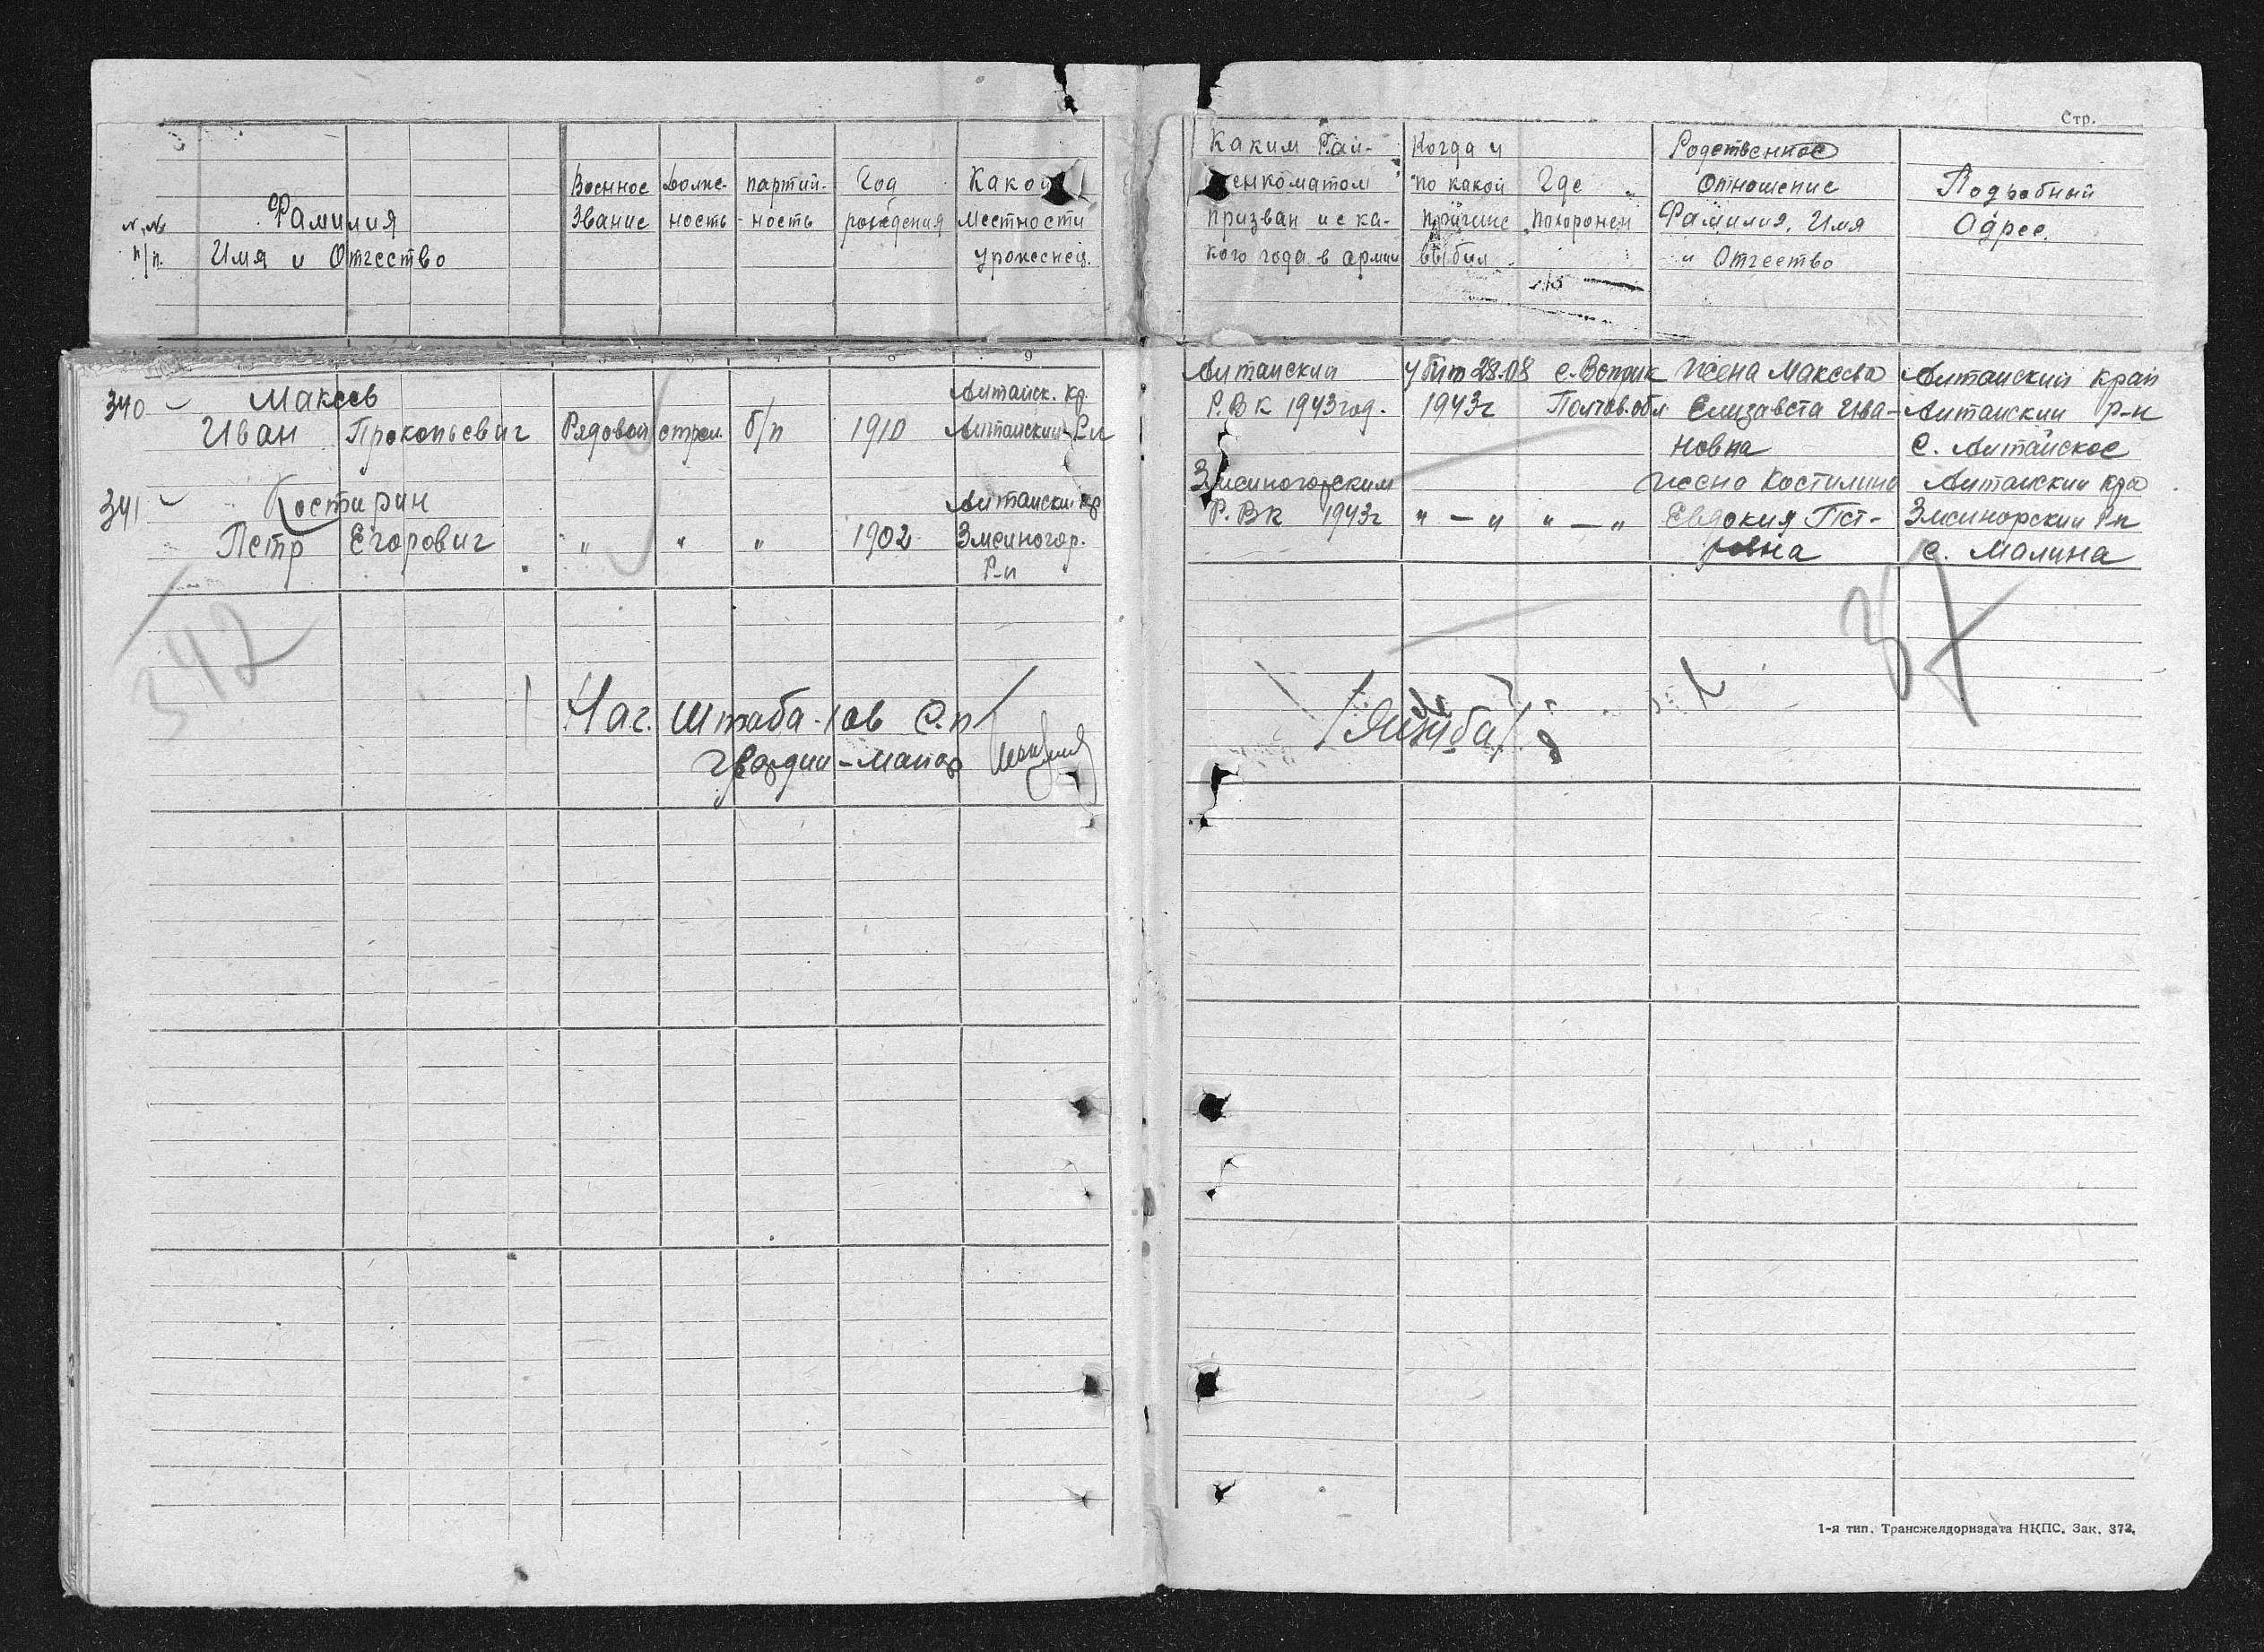 Стр.
N.N. п/п.
Фамилия
Имя и Отчество
Военное
Звание
Должс-
ность
партий-
ность
Год
рождения
Какой
Местности
урожснец.
Каким Рай-
енкоматом
призван и с ка-
кого года в армии
Когда и
по какой
причине
выбил
Где
похоронен
Родственное
Отношение
Фамилия, Имя
и Отчество
Подробный
Адрес.
8
9
340
Макеев
Иван Прокопьевич
Рядовой
стрел.
б/п
1910
Алтайск. кр.
Алтайский Р-н
Алтайский
Р.В к 1943 год.
убит 28.08
1943г
Полтав. обл.
жена Макеева
Елизавета Ива-
новна
Алтайский край
Алтайский р-н
с. Алтайское
341
Петр Егорович
" " "
1902
Алтайский кр
Змеиногор.
Р-н
Змеиногорским
Р. Вк 1943г
" — " " — "
жена Костилина
Евдокия Пет-
ровна
Алтайский кра
Змеинорский Р-н
с. Малина
342
37
Нач. Штаба
С.п
гвардии-майор
1-я тип. Трансжелдориздата НКПС. Зак. 372.